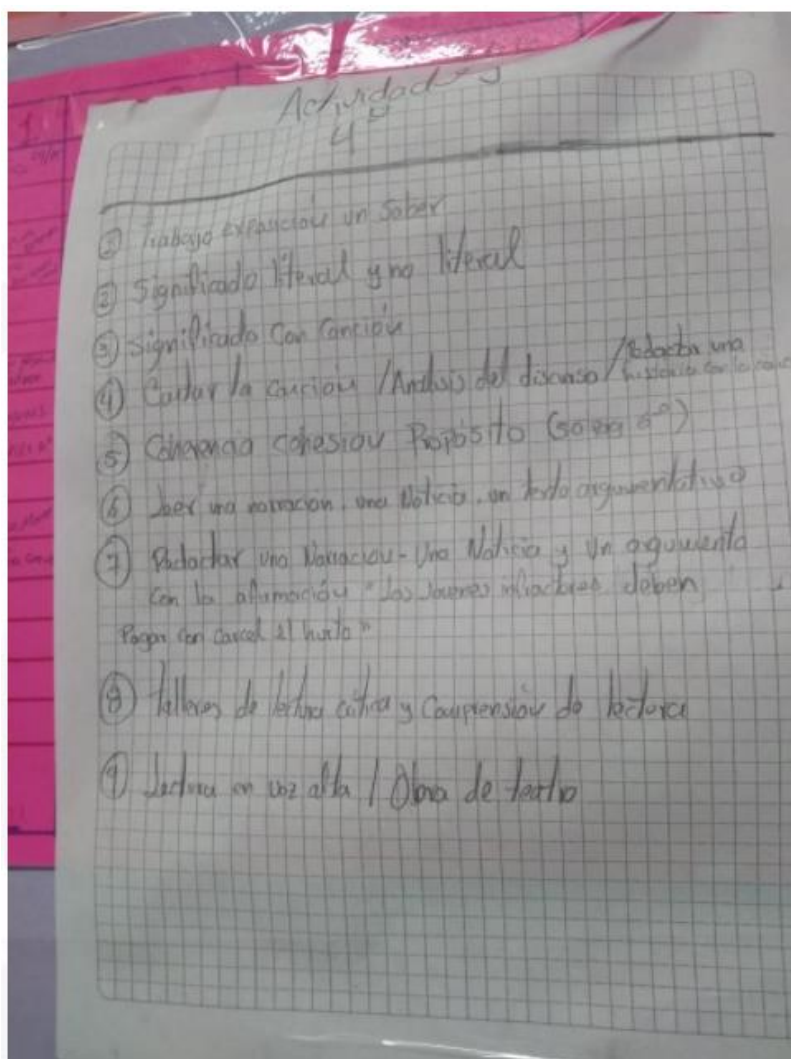 Actividades
4º
① Trabajo exposición un Saber
② Significado literal y no literal
③ Significado Con Canción
④ Cantar la canción / Analisis del discurso / Redactar una
historia con la
⑤ Coherencia cohesion Proposito
⑥ Leer una narración, una Noticia, un texto argumentativo
⑦ Redactar una Narracion - Una Noticia y un argumento
con la afirmación "Los Jovenes infractores deben
Pagar con carcel el hurto"
⑧ Talleres de lectura critica y Comprension de lectura
⑨ Lectura en voz alta / Obra de teatro